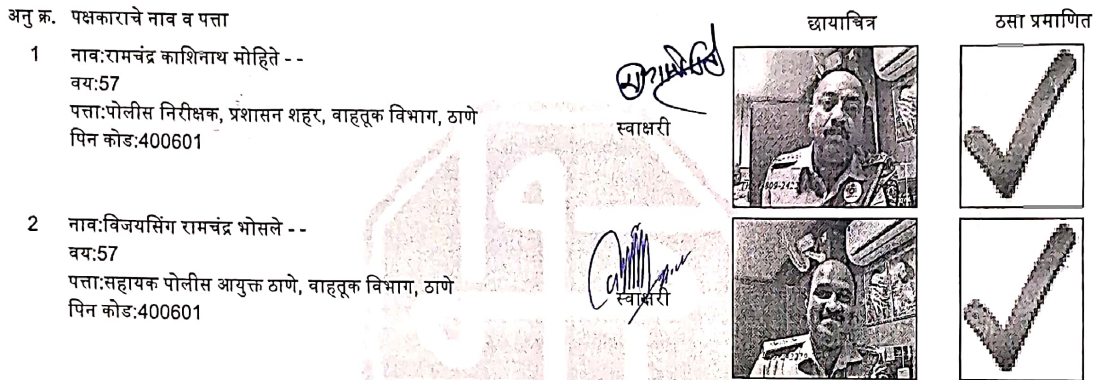 अनु क्र. पक्षकाराचे नाव व पत्ता छायाचित्र ठसा प्रमाणित
1 नाव:रामचंद्र काशिनाथ मोहिते - -
वय:57
पत्ता:पोलीस निरीक्षक, प्रशासन शहर, वाहतूक विभाग, ठाणे
पिन कोड:400601
स्वाक्षरी
2 नाव:विजयसिंग रामचंद्र भोसले - -
वय:57
पत्ता:सहायक पोलीस आयुक्त ठाणे, वाहतूक विभाग, ठाणे
पिन कोड:400601
स्वाक्षरी